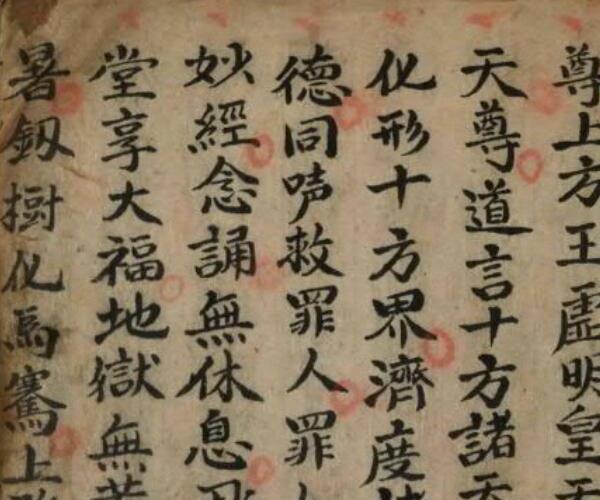 尊上方王虛明皇天
天尊道言十方諸天
化形十方界濟度
德同吽救罪人罪人
妙經念誦無休息
堂享大福地獄無苦
暑釼樹化為騫上